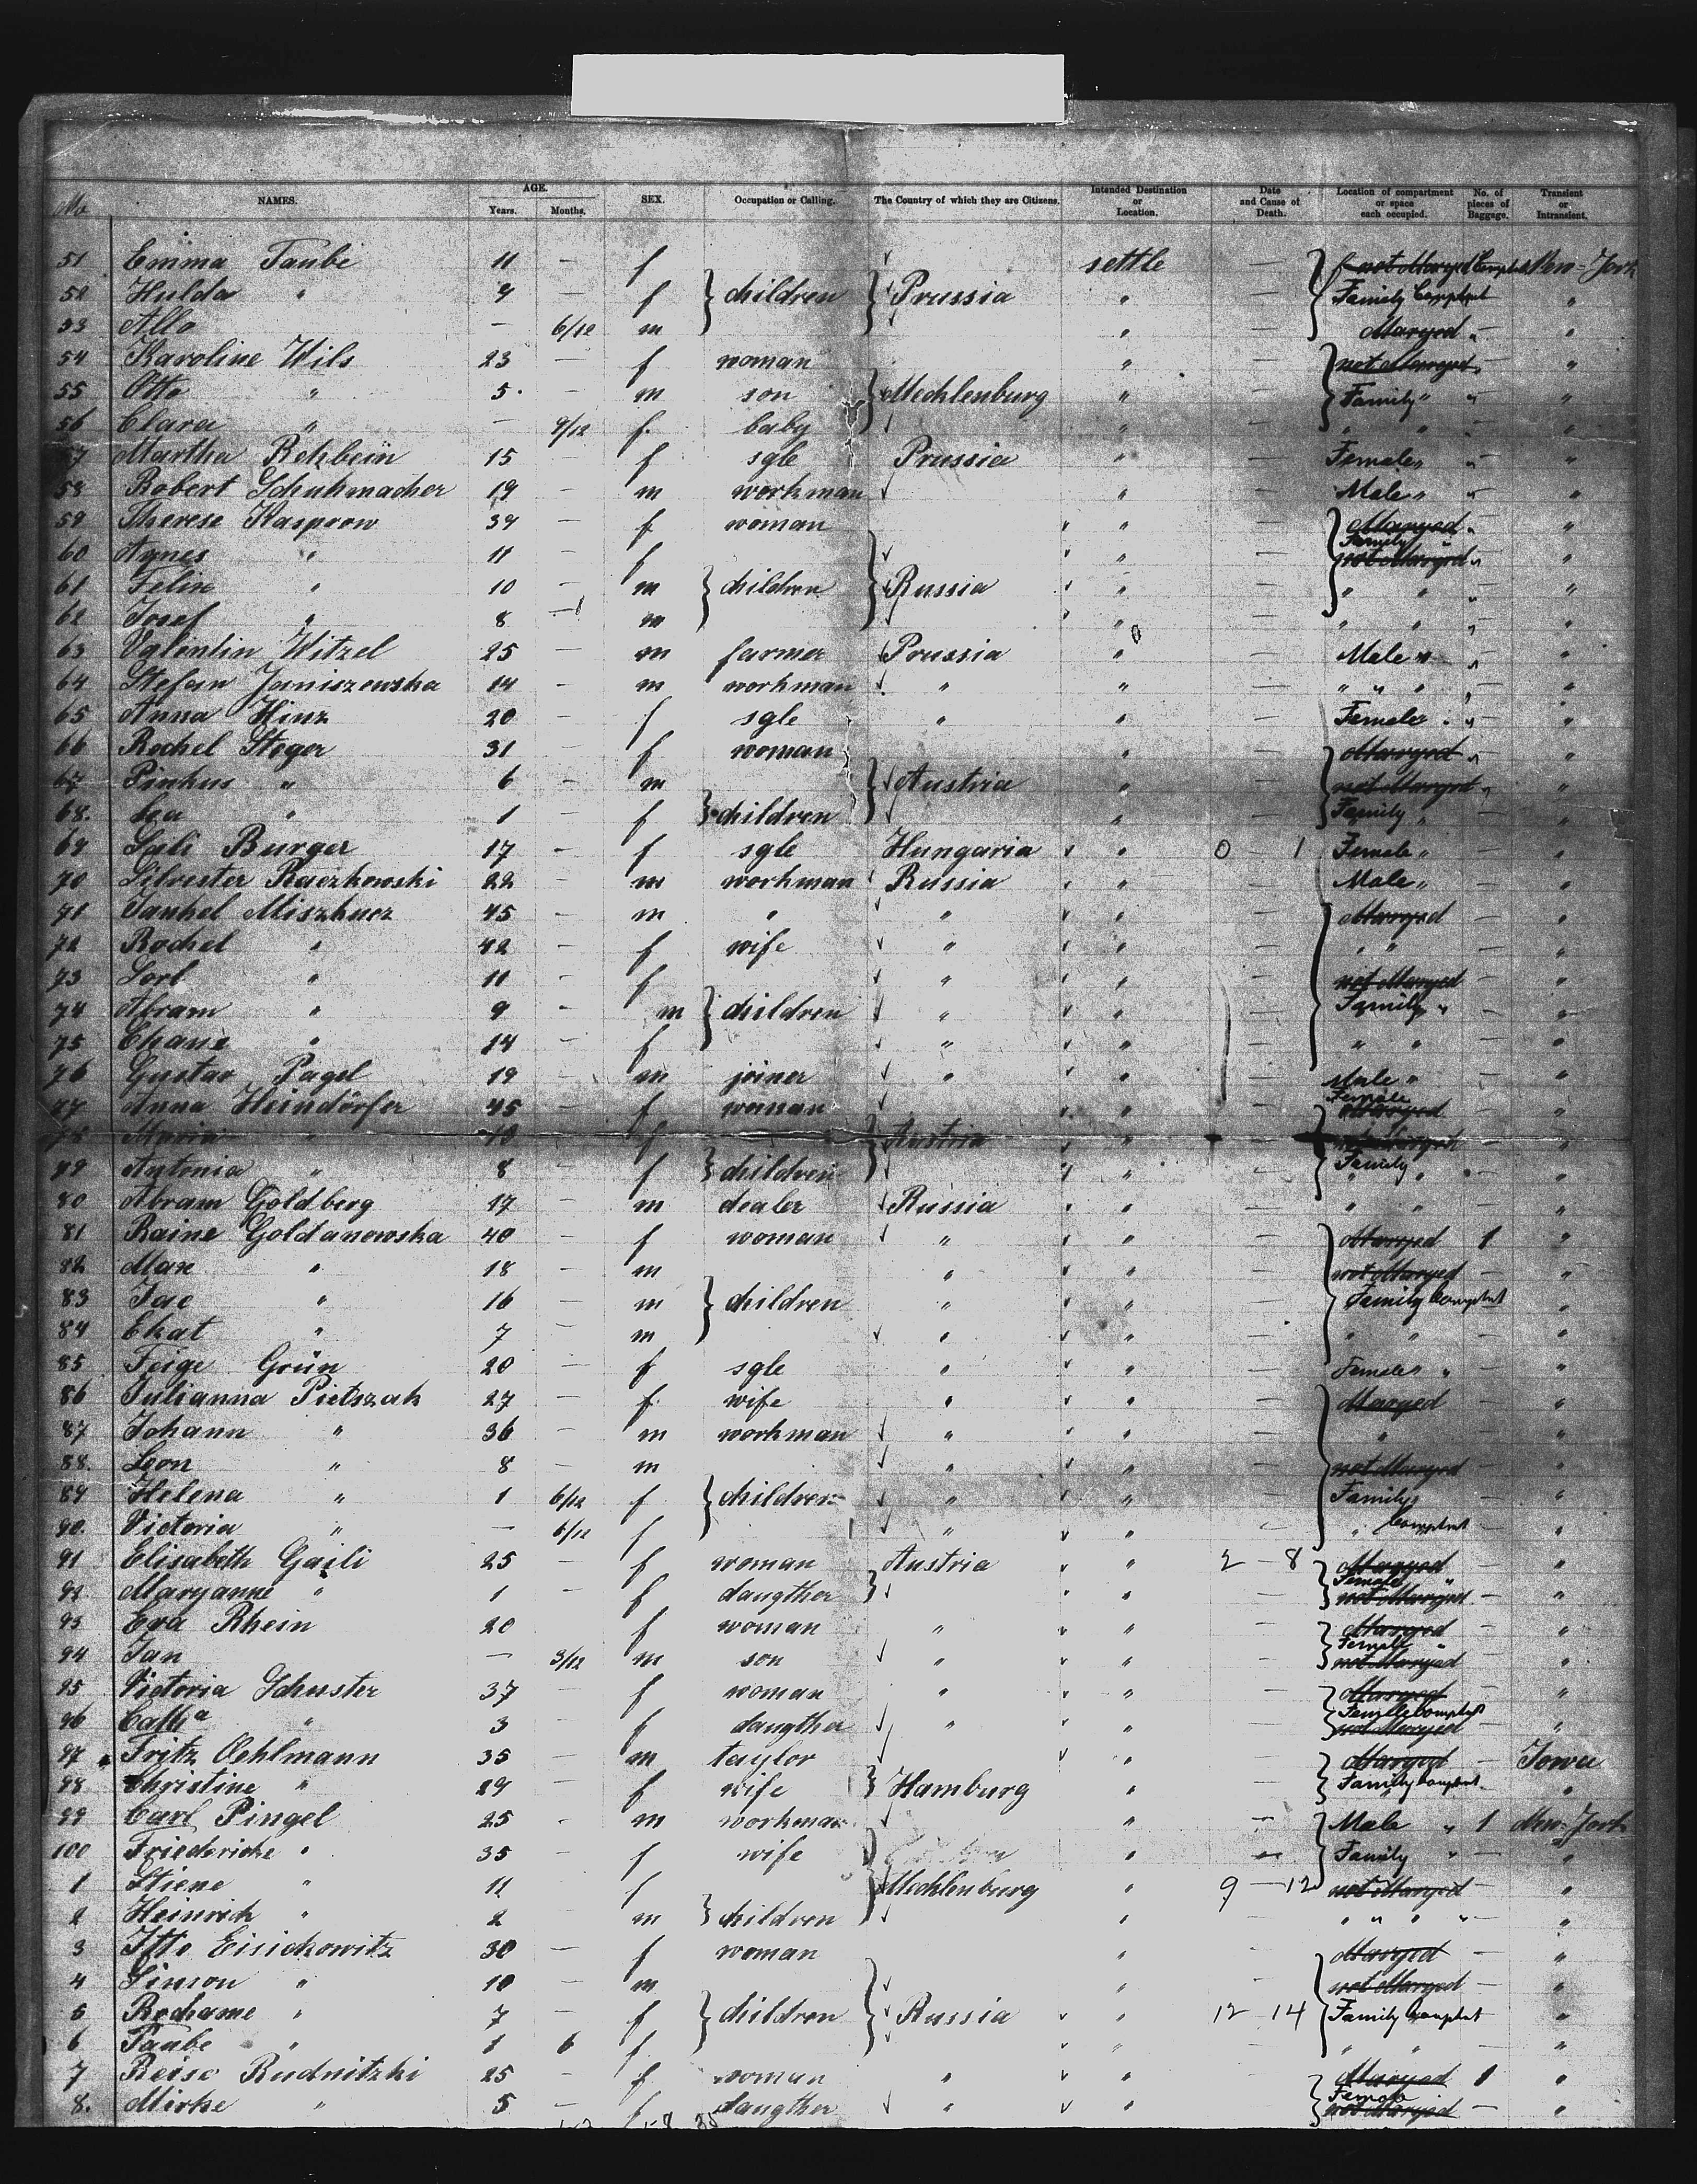 No NAMES. AGE. Years. Months. SEX. Occupation or Calling. The Country of which they are Citizens. Intended Destination or Location. Date and Cause of Death. Location of compartment or space each occupied. No. of pieces of Baggage. Transient or Intransient.
51 Emma Taube 11 — f settle not Maryed Compbt New-York
52 Hulda " 9 — f children Prussia " — Family Compbt "
53 Allo — 6/12 m " — Maryed " "
54 Karoline Wils 23 — f woman " — not Maryed "
55 Otto " 5 — m son Mechlenburg " — Family " " "
56 Clara " — 9/12 f. baby " — " " "
57 Martha Rehbein 15 — f sgle Prussia " — Female " " "
58 Robert Schuhmacher 19 — m workman " — Male " " "
59 Therese Kasprow 39 — f woman " — Maryed " "
60 Agnes " 11 — f " — Family not Maryed " "
61 Felix " 10 — m children Russia " — " " " "
62 Josef " 8 — m " — " " " "
63 Valentin Witzel 25 — m farmer Prussia " — Male " " "
64 Stefan Janiszewska 14 — m workman " " — " " " " "
65 Anna Hinz 20 — f sgle " " — Female " " "
66 Rochel Steger 31 — f woman " — Maryed " "
67 Pinkus " 6 — m Austria " — not Maryed " "
68. Lea " 1 — f children " — Family " "
69 Sali Burger 17 — f sgle Hungaria " 0 — 1 Female " "
70 Silvester Raczkowski 22 — m workman Russia " — Male " "
71 Jankel Miszkucz 45 — m " " " — Maryed — "
72 Rochel " 42 — f wife " " — " " — "
73 Sorl " 11 — f " " — not Maryed — "
74 Abram " 9 — m children " " — Family " "
75 Chane " 14 — f " " — " " "
76 Gustav Pagel 19 — m joiner " " — Male " "
77 Anna Heindörfer 45 — f woman " — Female Maryed "
78 Maria " 10 f Austria " — not Maryed "
79 Antonia " 8 — f children " — Family "
80 Abram Goldberg 17 — m dealer Russia " — " " — "
81 Raine Goldanowska 40 — f woman " " — Maryed 1 "
82 Max " 18 — m " " — not Maryed — "
83 " 16 — m children " " — Family Compbt "
84 Ekat " 7 — m " " — " " — "
85 Feige Grün 20 — f sgle " " — Female " "
86 Julianna Pietszak 27 — f. wife " " — Maryed — "
87 Johann " 36 — m workman " " — " — "
88. Leon " 8 — m " " — not Maryed — "
89 Helena " 1 6/12 f children " " — Family "
90. Victoria " — 6/12 f " " — " Compbt — "
91 Elisabeth Gaili 25 — f woman Austria " 2 — 8 Maryed — "
92 Maryanne " 1 — f daugther " — Female not Maryed — "
93 Eva Rhein 20 f woman " " — Maryed — "
94 Jan — 3/12 m son " " — Female not Maryed — "
95 Victoria Schuster 37 — f woman " " — Maryed — "
96 Catha " 3 — f daugther " " — Female Compbt not Maryed — "
97 Fritz Oehlmann 35 — m taylor " — Maryed — Iowa
98 Christine " 29 — f wife Hamburg " — Family Compbt "
99 Carl Pingel 25 — m workman " — Male " 1 New-York
100 Friedericke " 35 — f wife " — Family " — "
1 Stiene " 11 f Mechlenburg " 9 — 12 not Maryed — "
2 Heinrich " 2 m children " — " " " " — "
3 Itte Eisickowitz 30 — f woman " — Maryed — "
4 Simson " 10 — m " — not Maryed — "
5 Rochame " 7 f children Russia " 12 14 Family Compbt "
6 Taube " 1 6 f " — " " — "
7 Reise Rudnitzki 25 — f woman " " — Maryed 1 "
8. Mirke " 5 — f daugther " " — Female not Maryed — "